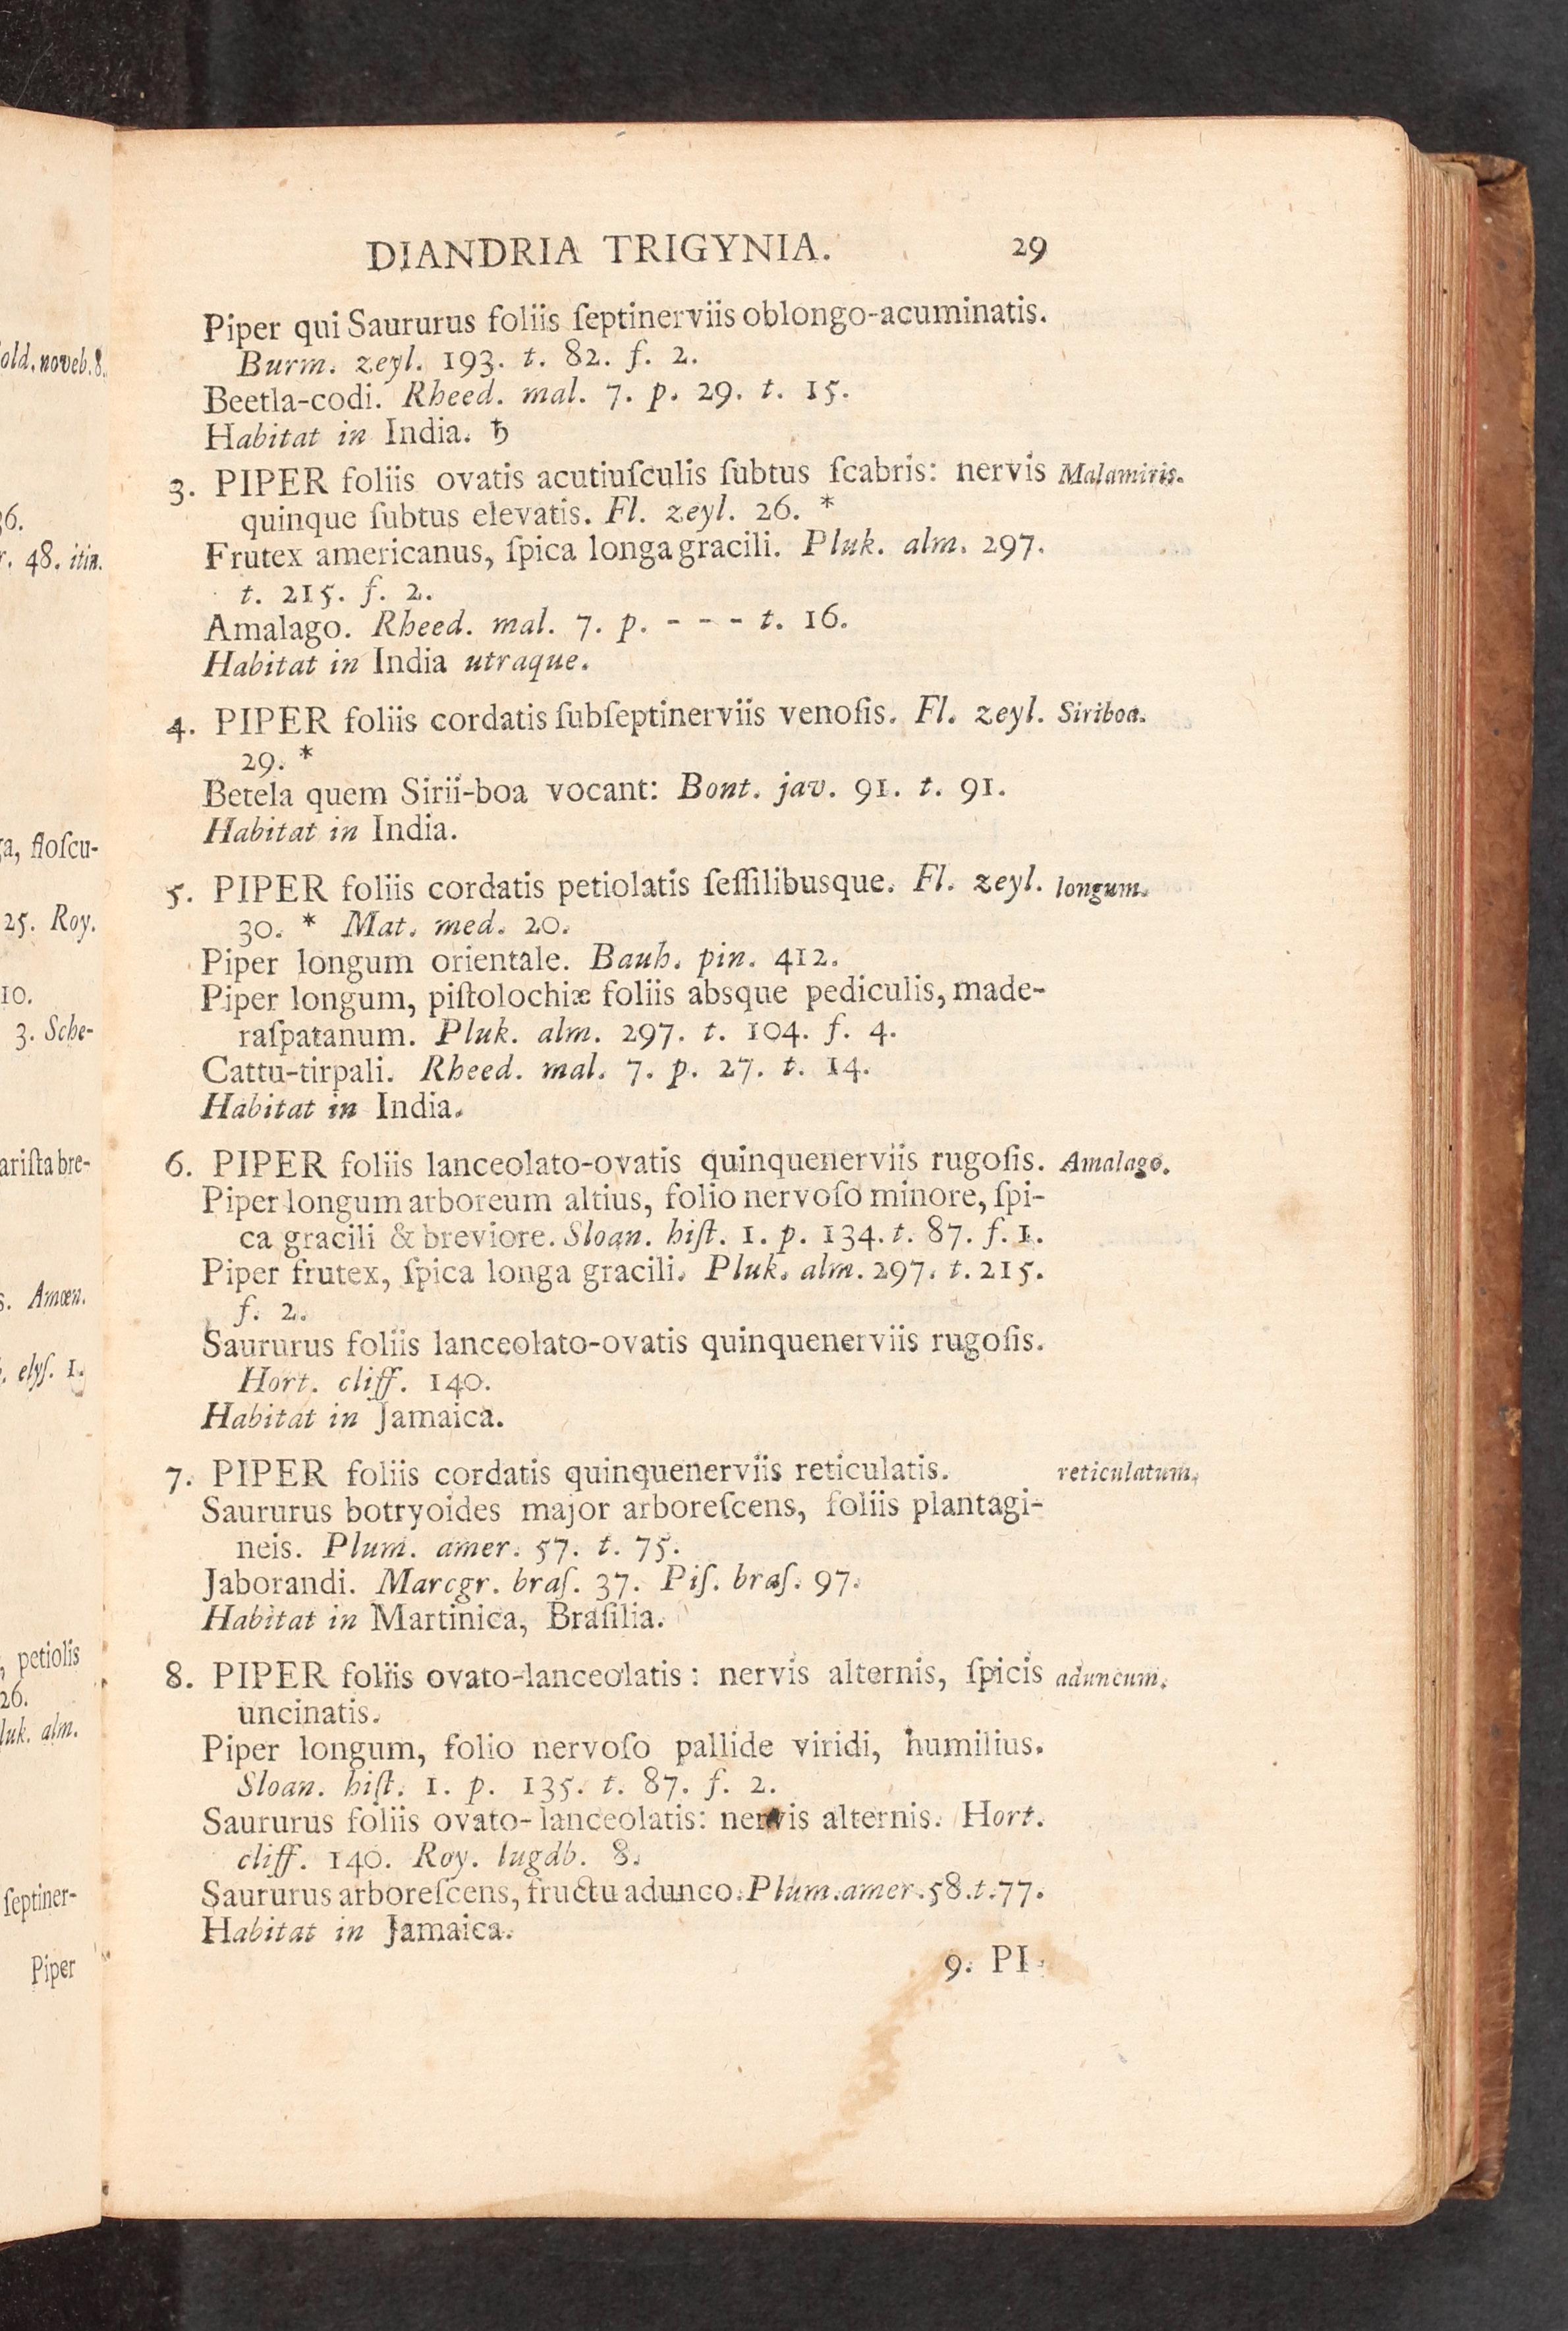 DIANDRIA TRIGYNIA. 29
Piper qui Saururus foliis ſeptinerviis oblongo-acuminatis.
Burm. zeyl. 193. t. 82. f. 2.
Beetla-codi. Rheed. mal. 7. p. 29. t. 15.
Habitat in India. ♄
3. PIPER foliis ovatis acutiuſculis ſubtus ſcabris: nervis Malamiris.
quinque ſubtus elevatis. Fl. zeyl. 26. *
Frutex americanus, ſpica longa gracili. Pluk. alm. 297.
t. 215. f. 2.
Amalago. Rheed. mal. 7. p. - - - t. 16.
Habitat in India utraque.
4. PIPER foliis cordatis ſubſeptinerviis venoſis. Fl. zeyl. Siriboa.
29. *
Betela quem Sirii-boa vocant: Bont. jav. 91. t. 91.
Habitat in India.
5. PIPER foliis cordatis petiolatis ſeſſilibusque. Fl. zeyl. longum.
30. * Mat. med. 20.
Piper longum orientale. Bauh. pin. 412.
Piper longum, piſtolochiæ foliis absque pediculis, made-
raſpatanum. Pluk. alm. 297. t. 104. f. 4.
Cattu-tirpali. Rheed. mal. 7. p. 27. t. 14.
Habitat in India.
6. PIPER foliis lanceolato-ovatis quinquenerviis rugoſis. Amalago.
Piper longum arboreum altius, folio nervoſo minore, ſpi-
ca gracili & breviore. Sloan. hiſt. 1. p. 134. t. 87. f. 1.
Piper frutex, ſpica longa gracili. Pluk. alm. 297. t. 215.
f. 2.
Saururus foliis lanceolato-ovatis quinquenerviis rugoſis.
Hort. cliff. 140.
Habitat in Jamaica.
7. PIPER foliis cordatis quinquenerviis reticulatis. reticulatum.
Saururus botryoides major arboreſcens, foliis plantagi-
neis. Plum. amer. 57. t. 75.
Jaborandi. Marcgr. braſ. 37. Piſ. braſ. 97.
Habitat in Martinica, Braſilia.
8. PIPER foliis ovato-lanceolatis: nervis alternis, ſpicis aduncum.
uncinatis.
Piper longum, folio nervoſo pallide viridi, humilius.
Sloan. hiſt. 1. p. 135. t. 87. f. 2.
Saururus foliis ovato-lanceolatis: nervis alternis. Hort.
cliff. 140. Roy. lugdb. 8.
Saururus arboreſcens, fructu adunco. Plum. amer. 58. t. 77.
Habitat in Jamaica.
9. PI-
old. noveb. 8.
36.
48. itin.
floſcu-
25. Roy.
10.
3. Sche-
ariſta bre-
Amœn.
elyſ. 1.
petiolis
26.
luk. alm.
ſeptiner-
Piper